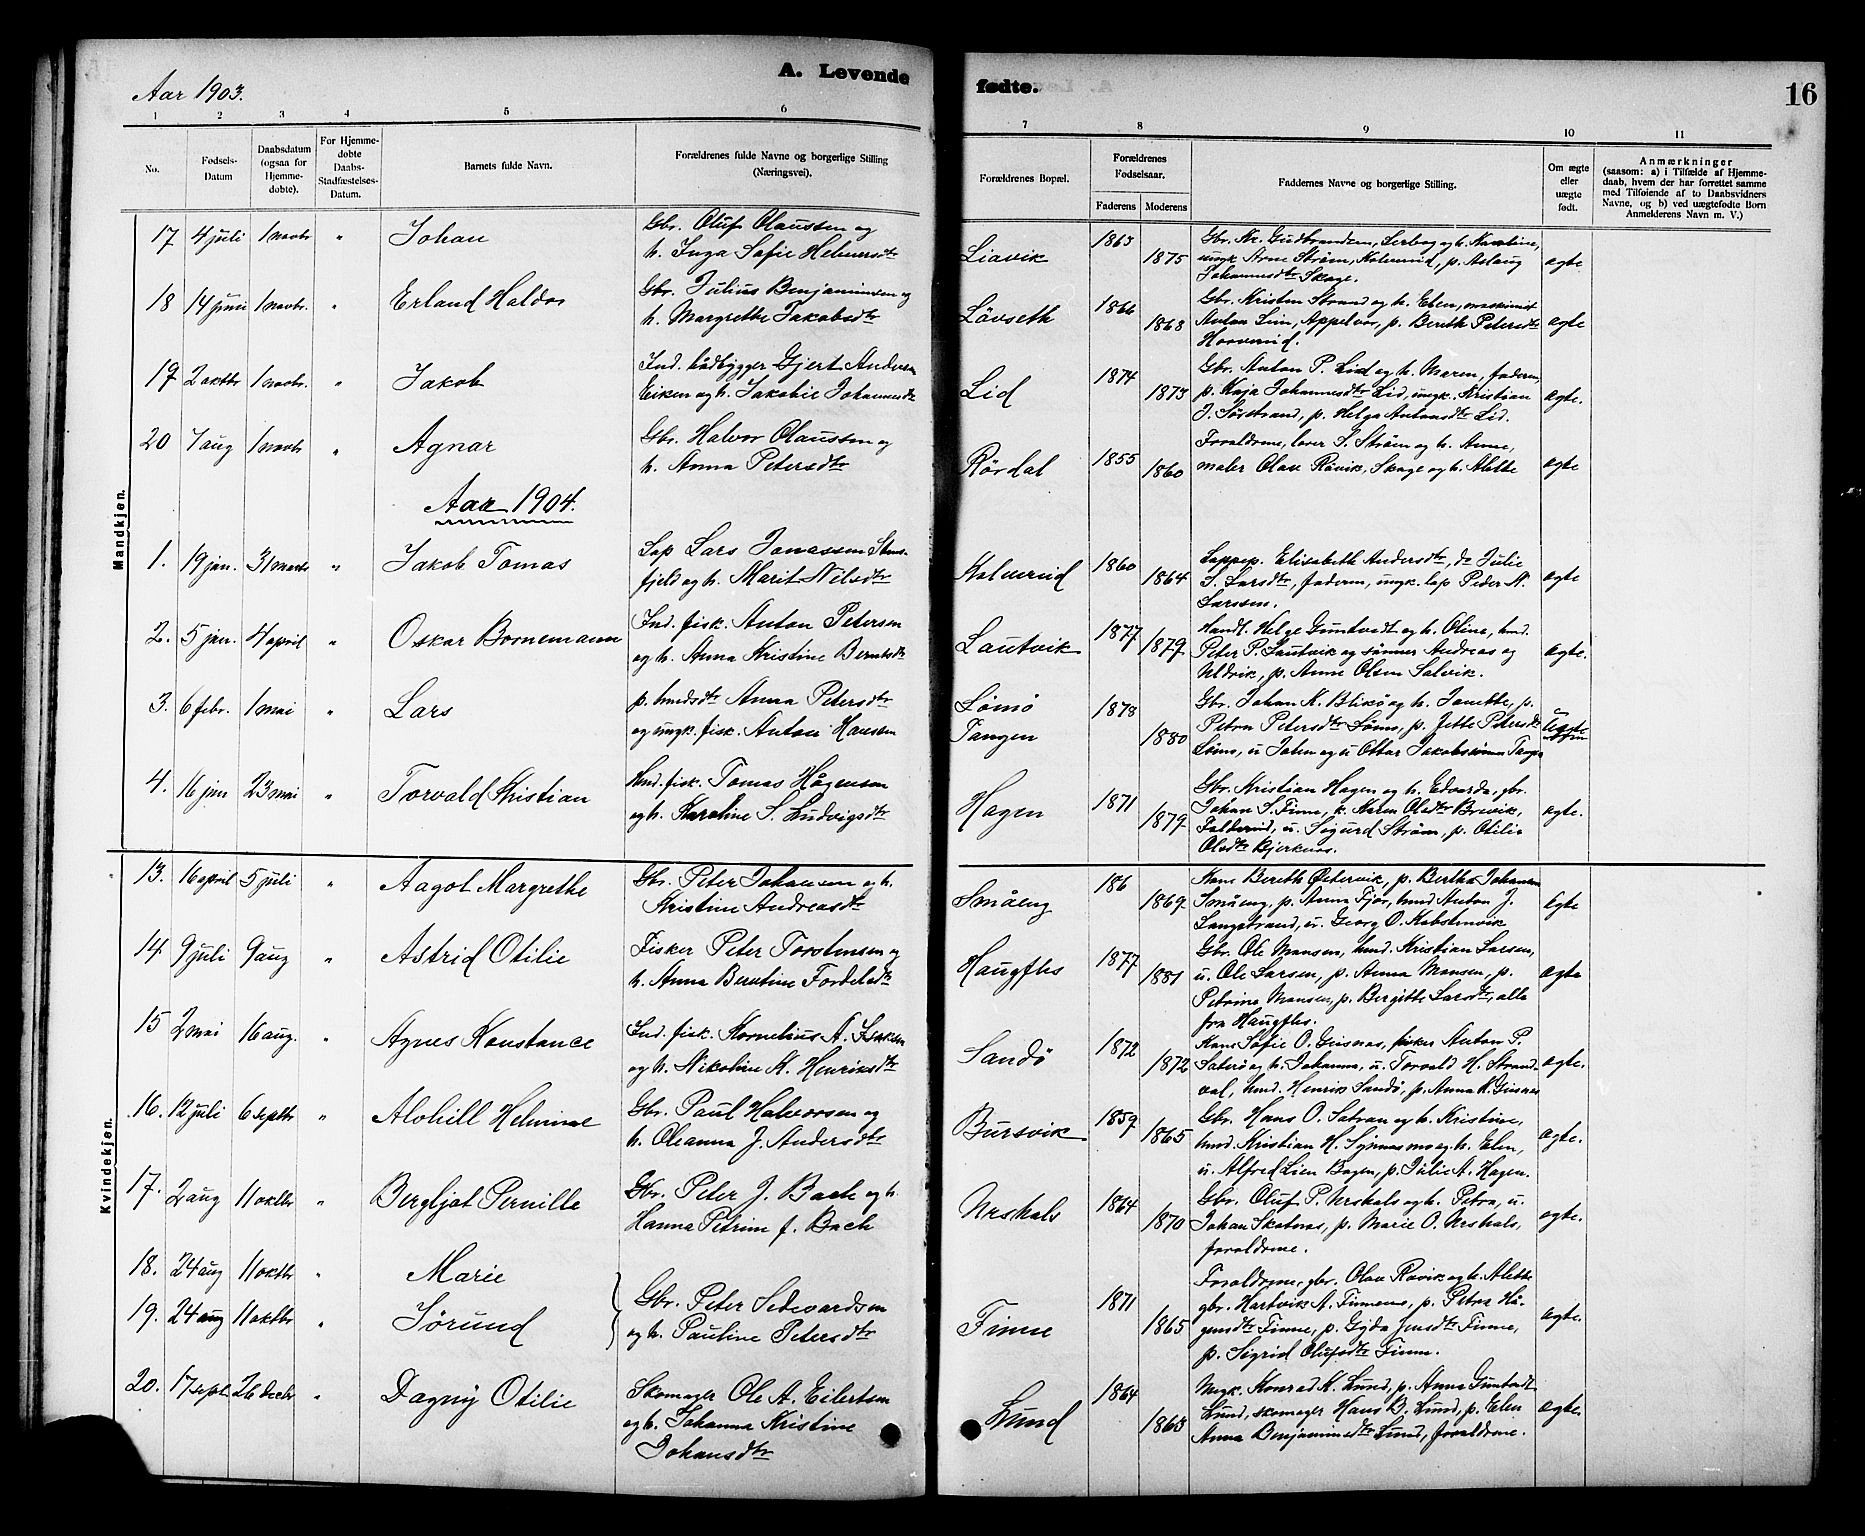 Aar 1903.
A. Levende
fødte.
16
1 2 3 4 5 6 7 8 9 10 11
No.
Fødsels-
Datum
Daabsdatum
(ogsaa for
Hjemme-
døbte).
For Hjemme-
døbte
Daabs-
Stadfæstelses-
Datum.
Barnets fulde Navn.
Forældrenes fulde Navne og borgerlige Stilling
(Næringsvei).
Forældrenes Bopæl.
Forældrenes
Fødselsaar.
Faderens Moderens
Faddernes Navne og borgerlige Stilling.
Om ægte
eller
uægte
født.
Anmærkninger
(saasom: a) i Tilfælde af Hjemme-
daab, hvem der har forrettet samme
med Tilføiende af to Daabsvidners
Navne, og b) ved uægtefødte Børn
Anmelderens Navn m. V.)
Mandkjøn.
17 4 juli 1 novbr " Johan
Gbr. Oluf Olaussen og
h. Inga Sofie Helmersdtr
Liavik 1863 1875
Gbr. Nr. Gudbrandsen, Serbog og h. Nikoline,
ungk Arne Strøm, Kalvereid, p. Aslaug
Johannesdtr Skage.
ægte
18 14 juni 1 novbr. " Erland Haldor
Gbr. Julius Benjaminsen og
h. Margrethe Jakobsdtr
Lövseth 1866 1868
Gbr. Kristen Strand og h. Elen, maskinist
Anton Lien, Appelvær, p. Bereth Petersdtr
ægte
19 2 oktbr 1 novbr. " Jakob
Ind. baadbygger Gjert Andersen
Eiken og h. Jakobie Johannesdtr
Lid 1874 1873
Gbr. Anton P. Lid og h. Maren, faderen,
p. Kaja Johannesdtr Lid, ungk. Kristian
J. Sørstrand, p. Helga Antonsdtr Lid.
ægte.
20 7 aug 1 novbr " Agnar
Gbr. Halvor Olaussen og
h. Anna Petersdtr
Rördal 1855 1860
Forældrene, lærer S. Strøm og h. Anne,
maler Olav Rövik, Skage og h. Alette
ægte
Aar 1904.
1. 19 jan. 31 marts " Jakob Tomas
Lap Lars Jonassen Sten-
fjeld og h. Marit Nilsdtr
Kalvereid 1860 1864
Lappep. Elisabeth Andersdtr, do Julie
S. Larsdtr, faderen, ungk. lap Peder N.
Larssen.
ægte
2. 5 jan. 4 april " Oskar Bornemann
Ind. fisk. Anton Petersen
og h. Anna Kristine Berntsdtr
Lautvik 1877 1879
Handl. Helge Gundvedt og h. Oline, hmd.
Peter P. Lautvik og sønner Andreas og
Uldrik, p. Anne Olsen Salvik.
ægte.
3. 6 febr. 1 mai " Lars
p. hmdsdtr Anna Petersdtr
og ungk. fisk. Anton Hansen
Lömö
Tangen 1878 1880
Gbr. Johan K. Blikö og h. Janette, p.
Petra Petersdtr Lömö, p. Jette Petersdtr
Lömö, u Johan og u Ottar Jakobsönner Tangen
4. 16 jan 23 mai " Torvald Kristian
Hmd. fisk. Tomas Hågensen
og h. Karoline S. Ludvigsdtr
Hagen 1871 1879
Gbr. Kristian Hagen og h. Edvarda, gbr.
Johan S. Finne, k. Karen Olsdtr Brevik,
Faldereid, u. Sigurd Strøm, p. Otilie
Olsdtr Bjerknes.
ægte.
Kvindekjøn.
13. 16 april 5 juli " Aagot Margrethe
Gbr. Peter Johansen og h.
Kristine Andreasdtr
Småeng 186 1869
Kone Bereth Østervik, p. Bertha Johansen
Småeng, p. Anna Fjær, hmd Anton J.
Langstrand, u. Georg O. Kobstenvik
ægte
14. 9 juli 9 aug " Astrid Otilie
Fisker Peter Torstensen og
h. Anna Berntine Fordelsdtr
Haugfles 1877 1881
Gbr. Ole Monsen, hmd. Kristian Larsen,
u. Ole Larsen, p. Anna Monsen, p.
Petrine Monsen, p. Bergitte Larsdtr, alle
fra Haugfles.
ægte
15 2 mai 16 aug. " Agnes Konstance
Ind. fisk. Kornelius A. Isaksen
og h. Nikoline K. Henriksdtr
Sandö 1872 1872
Kone Sofie O. Grisnes, fisker Anton P.
Saterö og h. Johanna, u. Torvald H. Strand-
val, hmd. Henrik Sandö, p. Anna K. Grisnes
ægte.
16. 12 juli 6 septbr " Alohill Helmine
Gbr. Paul Halvorsen og
h. Oleanna J. Andersdtr
Bursvik 1859 1865
Gbr. Hans O. Satran og h. Kristine,
hmd. Kristian H. Synnesmo og h. Elen,
u. Alfred Lien Bogen, p. Julie A. Hagen.
ægte.
17. 2 aug 11 oktbr " Bergljot Pernille
Gbr. Peter J. Bach og h.
Hanna Petrine f. Bach
Urskals 1864 1870
Gbr. Oluf P. Urskals og h. Petra, u.
Johan Skatnes, p. Marie O. Urskals,
forældrene.
ægte.
18. 24 aug 11 oktbr " Marie
19. 24 aug 11 oktbr " Jörund
Gbr. Peter Sedevardsen
og h. Pauline Petersdtr
Finne 1871 1865
Forældrene, gbr. Olav Rövik og h. Alette
gbr. Hartvik A. Finnemo, p. Petra Hå-
gensdtr Finne, p. Gyda Jensdtr Finne,
p. Sigrid Olufsdtr Finne.
ægte.
20. 17 sept. 26 decbr " Dagny Otilie
Skomager Ole A. Eilertsen
og h. Johanna Kristine
Johansdtr
Lund 1864 1863
Ungk. Konrad K. Lund, p. Anna Gundvedt
Lund, skomager Hans B. Lund, p. Elen
Anna Benjaminsdtr Lund, forældrene.
ægte.